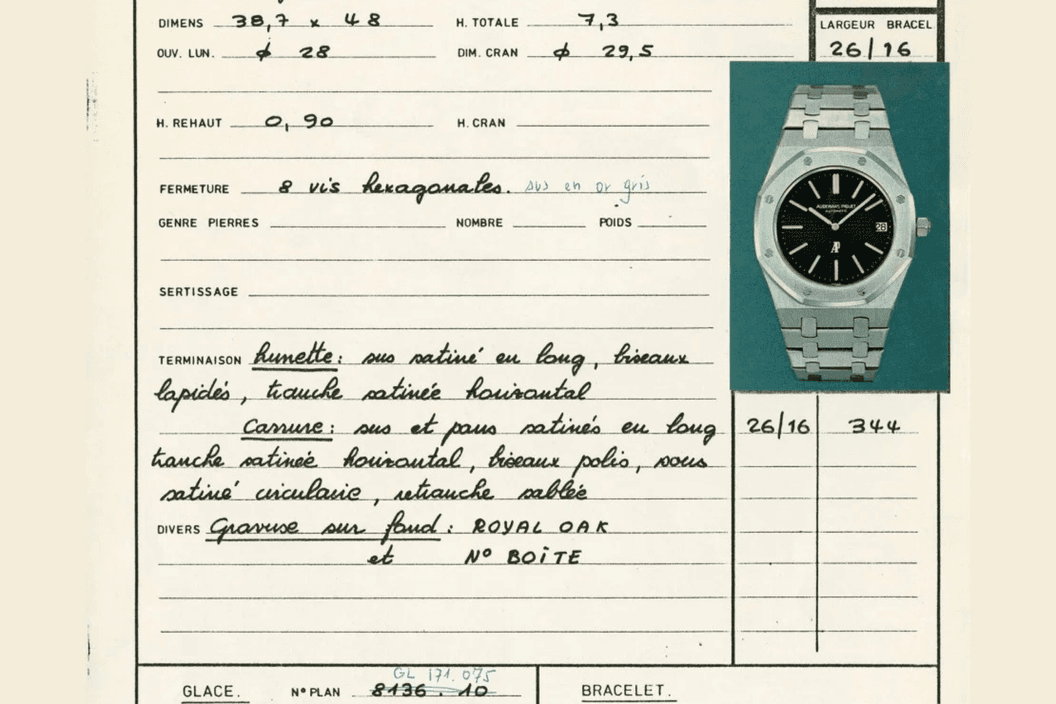 DIMENS 38,7 x 48 H. TOTALE 7,3
LARGEUR BRACEL
OUV. LUN. ϕ 28 DIM. CRAN ϕ 29,5
26/16
H. REHAUT 0,90 H. CRAN
FERMETURE 8 vis hexagonales. sus en or gris
GENRE PIERRES NOMBRE POIDS
SERTISSAGE
AUDEMARS PIGUET
AUTOMATIC
AP
28
TERMINAISON Lunette: sus satiné en long, biseaux
lapidés, tranche satinée horizontal
Carrure: sus et pans satinés en long
26/16 344
tranche satinée horizontal, biseaux polis, sous
satiné circulaire, retranche sablée
DIVERS Gravure sur fond: ROYAL OAK
et N° BOÎTE
GL 171.075
GLACE. N° PLAN 8136.10 BRACELET.